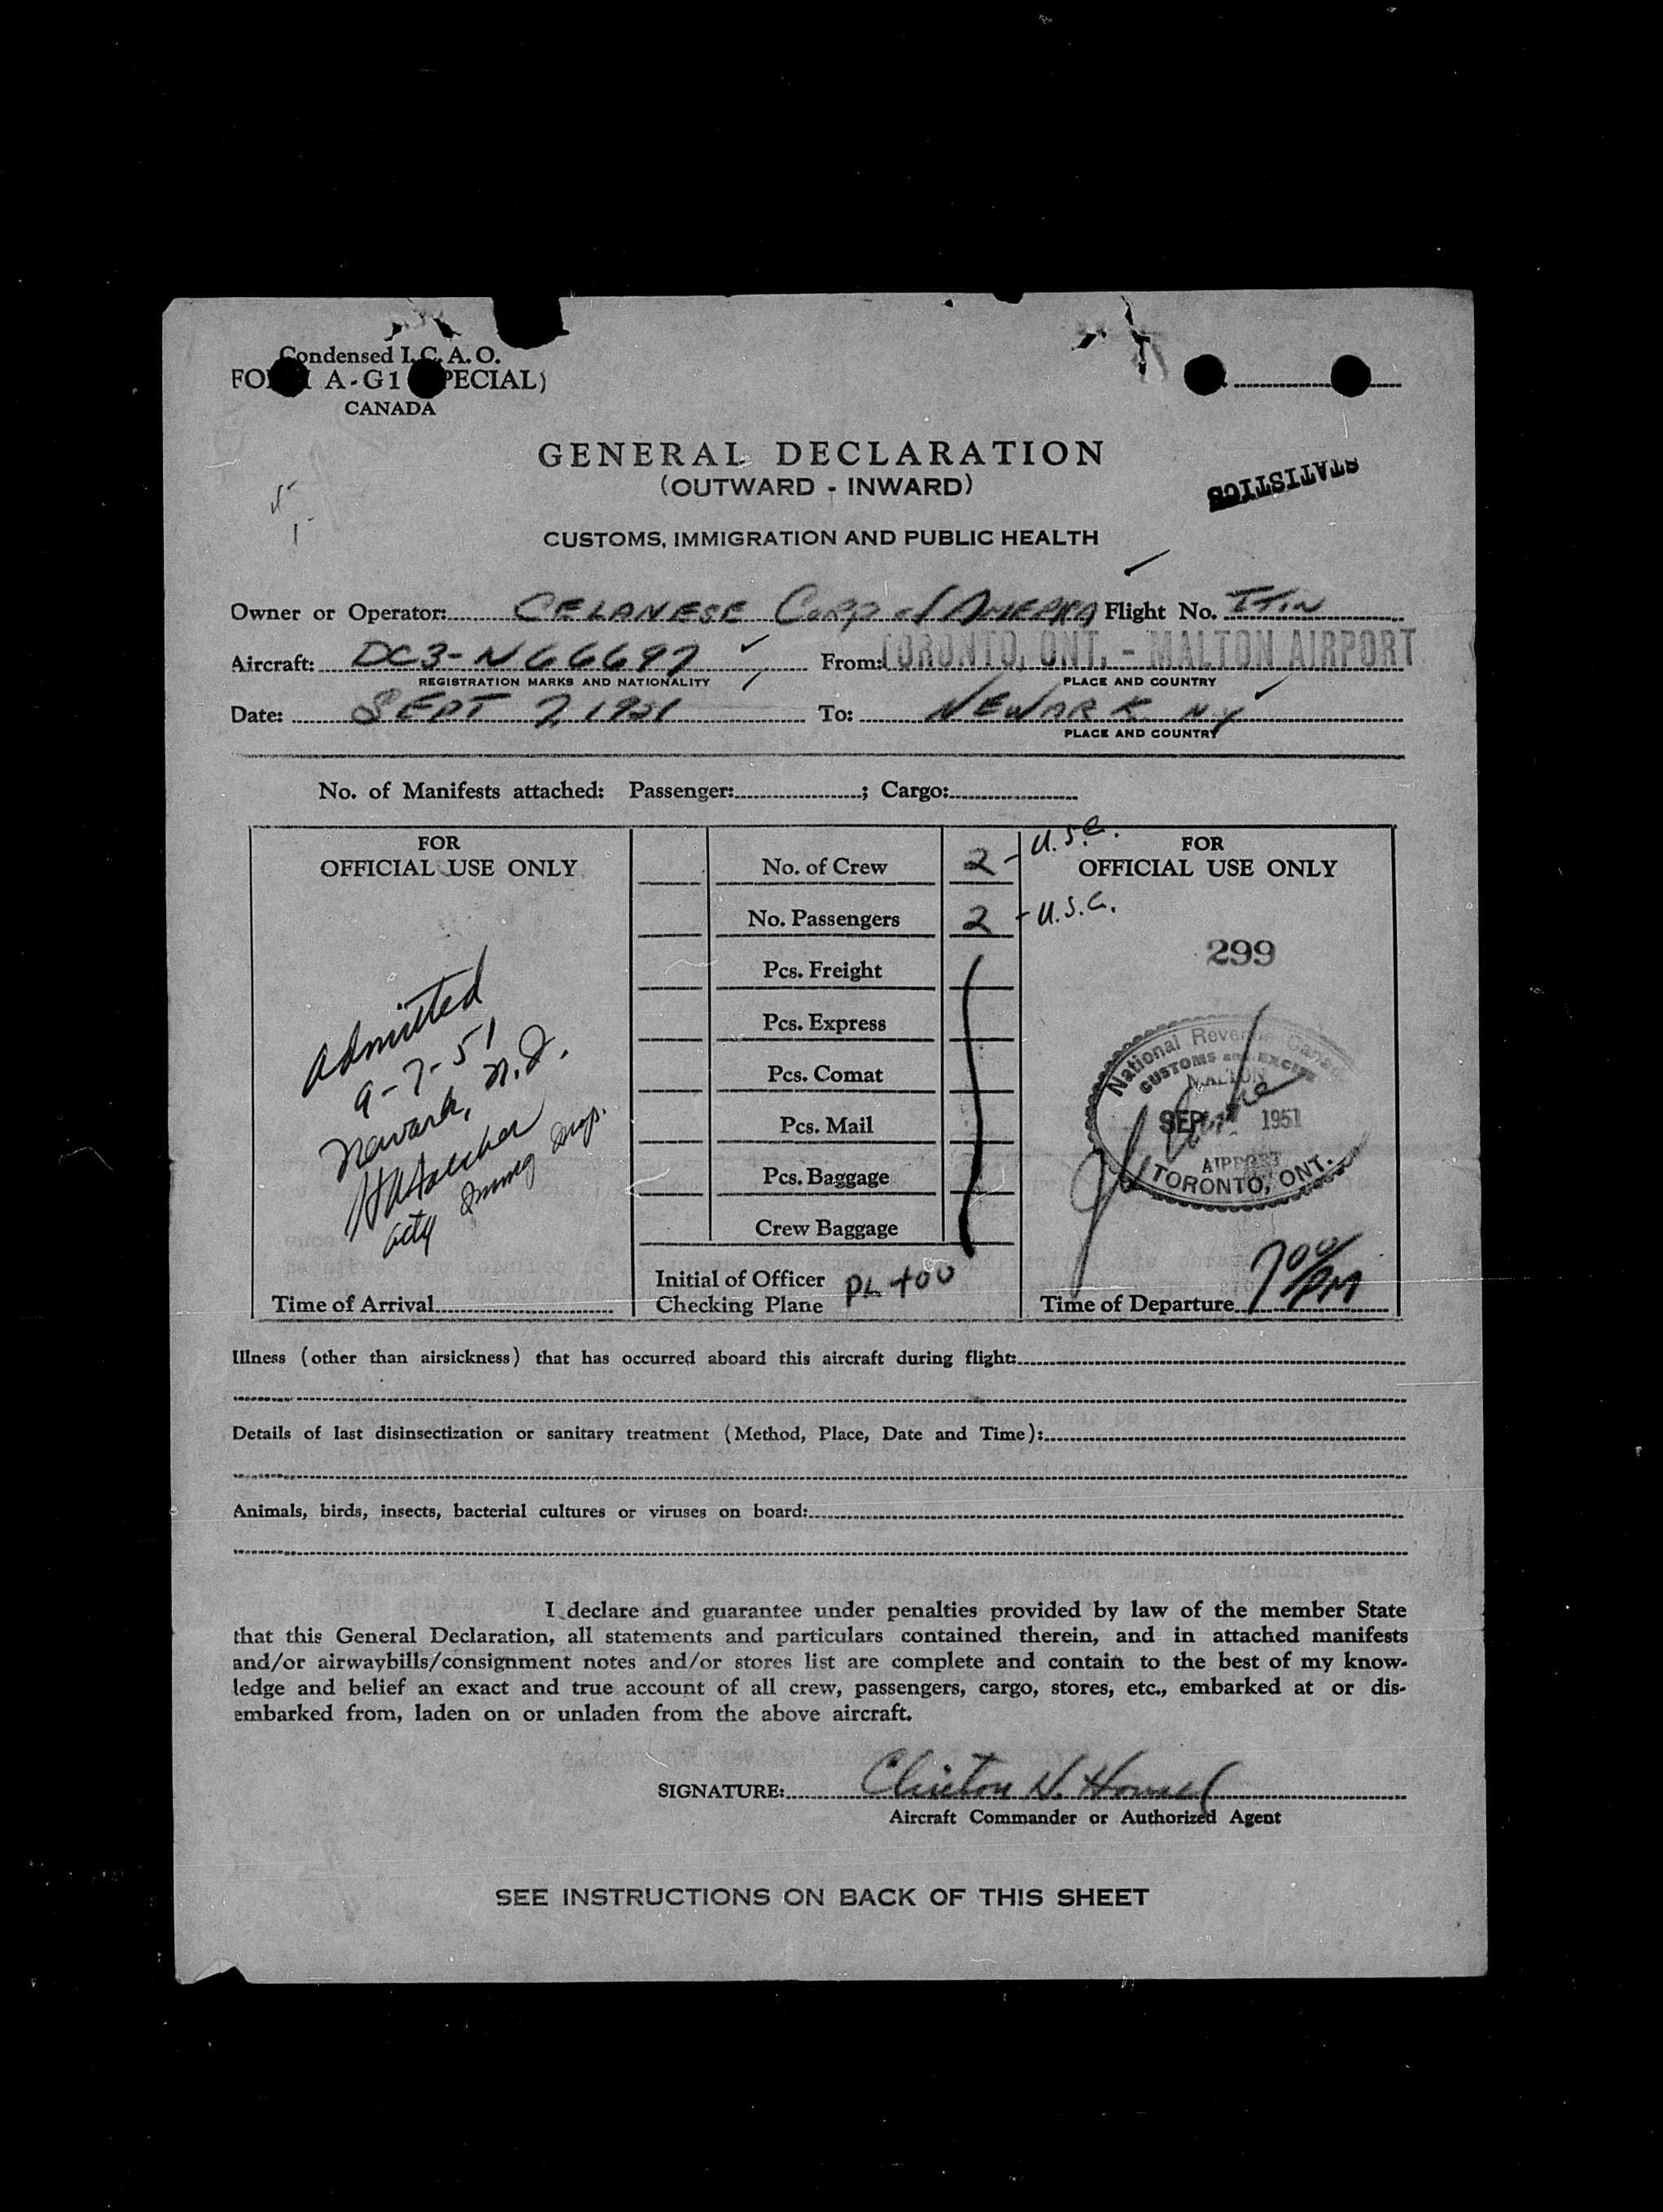 Condensed I. C. A. O.
FORM A-G1 (SPECIAL)
CANADA
GENERAL DECLARATION
(OUTWARD - INWARD)
STATISTICS
CUSTOMS, IMMIGRATION AND PUBLIC HEALTH
Owner or Operator: CELANESE Corp of AMERICA Flight No. ITIN
Aircraft: DC3-N66697 From: TORONTO, ONT. - MALTON AIRPORT
REGISTRATION MARKS AND NATIONALITY PLACE AND COUNTRY
Date: SEPT 7 1951 To: NEWARK NY
PLACE AND COUNTRY
No. of Manifests attached: Passenger: ; Cargo:
FOR
OFFICIAL USE ONLY
Admitted
9-7-51
Newark, N.J.
Actg Immig Insp.
Time of Arrival
No. of Crew 2 - U.S.C.
No. Passengers 2 - U.S.C.
Pcs. Freight
Pcs. Express
Pcs. Comat
Pcs. Mail
Pcs. Baggage
Crew Baggage
Initial of Officer
Checking Plane
FOR
OFFICIAL USE ONLY
299
National Revenue Canada
CUSTOMS and EXCISE
MALTON
SEP 1951
AIRPORT
TORONTO, ONT.
Time of Departure 7 00/PM
Illness (other than airsickness) that has occurred aboard this aircraft during flight:
Details of last disinsectization or sanitary treatment (Method, Place, Date and Time):
Animals, birds, insects, bacterial cultures or viruses on board:
I declare and guarantee under penalties provided by law of the member State
that this General Declaration, all statements and particulars contained therein, and in attached manifests
and/or airwaybills/consignment notes and/or stores list are complete and contain to the best of my know-
ledge and belief an exact and true account of all crew, passengers, cargo, stores, etc., embarked at or dis-
embarked from, laden on or unladen from the above aircraft.
SIGNATURE: Clinton N. Homel
Aircraft Commander or Authorized Agent
SEE INSTRUCTIONS ON BACK OF THIS SHEET